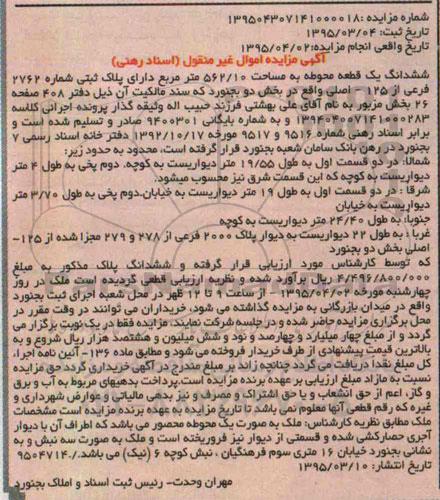 شماره مزایده :۱۳۹۵۰۴۳۰۷۱۴۱۰۰۰۰۱۸
تاریخ ثبت: ۱۳۹۵/۰۳/۰۴
تاریخ واقعی انجام مزایده:۱۳۹۵/۰۴/۰۲
آگهی مزایده اموال غیر منقول (اسناد رهنی)
ششدانگ یک قطعه محوطه به مساحت ۵۶۲/۱۰ متر مربع دارای پلاک ثبتی شماره ۲۷۶۲
فرعی از ۱۲۵ - اصلی واقع در بخش دو بجنورد که سند مالکیت آن ذیل دفتر ۴۰۸ صفحه
۲۶ بخش مزبور به نام آقای علی بهشتی فرزند حبیب اله وثیقه گذار پرونده اجرائی کلاسه
۱۳۹۴۰۴۰۰۷۱۴۱۰۰۰۲۸۳ و به شماره بایگانی ۹۴۰۰۳۰۱ صادر و تسلیم شده است و
برابر اسناد رهنی شماره ۹۵۱۶ و ۹۵۱۷ مورخه ۱۳۹۲/۱۰/۱۷ دفتر خانه اسناد رسمی ۷
بجنورد در رهن بانک سامان شعبه بجنورد قرار گرفته است، محدود به حدود زیر:
شمالا: در دو قسمت اول به طول ۱۹/۵۵ متر دیواریست به کوچه. دوم پخی به طول ۴ متر
دیواریست به کوچه که این قسمت شرق نیز محسوب میشود.
شرقا : در دو قسمت اول به طول ۱۹ متر دیواریست به خیابان.دوم پخی به طول ۳/۷۰ متر
دیواریست به خیابان
جنوبا: به طول ۲۴/۴۰ متر دیواریست به کوچه
غربا : به طول ۲۲ دیواریست به دیوار پلاک ۲۰۰۰ فرعی از ۲۷۸ و ۲۷۹ مجزا شده از ۱۲۵-
اصلی بخش دو بجنورد
که توسط کارشناس مورد ارزیابی قرار گرفته و ششدانگ پلاک مذکور به مبلغ
۴/۴۹۶/۸۰۰/۰۰۰ ریال برآورد شده و نظریه ارزیابی قطعی گردیده است ملک در روز
چهارشنبه مورخه ۱۳۹۵/۰۴/۰۲ از ساعت ۹ تا ۱۲ ظهر در محل شعبه اجرای ثبت بجنورد
واقع در میدان بازرگانی به مزایده گذاشته می شود، خریداران می توانند در وقت مقرر در
محل برگزاری مزایده حاضر شده و در جلسه شرکت نمایند. مزایده فقط در یک نوبت برگزار می
گردد و از مبلغ چهار میلیارد و چهارصد و نود و شش میلیون و هشتصد هزار ریال شروع و به
بالاترین قیمت پیشنهادی از طرف خریدار فروخته می شود و مطابق ماده ۱۳۶- آئین نامه اجرا،
کل مبلغ نقدا دریافت می گردد چنانچه زائد بر مبلغ مندرج در آگهی خریداری گردد حق مزایده
نسبت به مازاد مبلغ ارزیابی بر عهده برنده مزایده است.پرداخت بدهیهای مربوط به آب و برق
و گاز، اعم از حق انشعاب و یا حق اشتراک و مصرف و نیز بدهی مالیاتی و عوارض شهرداری و
غیره که رقم قطعی آنها معلوم نمی باشد تا تاریخ مزایده به عهده برنده مزایده است مشخصات
ملک مطابق نظریه کارشناس: ملک به صورت یک محوطه محصور می باشد که اطراف آن با دیوار
آجری حصارکشی شده و قسمتی از دیوار نیز فروریخته است و ملک به صورت سه نبش و به
نشانی بجنورد خیابان ۱۶ متری سوم فرهنگیان ، نبش کوچه ۶ (نیک) می باشد./.۹۵۰۴۷۱۴
تاریخ انتشار: ۱۳۹۵/۰۳/۱۰
مهران وحدت- رئیس ثبت اسناد و املاک بجنورد